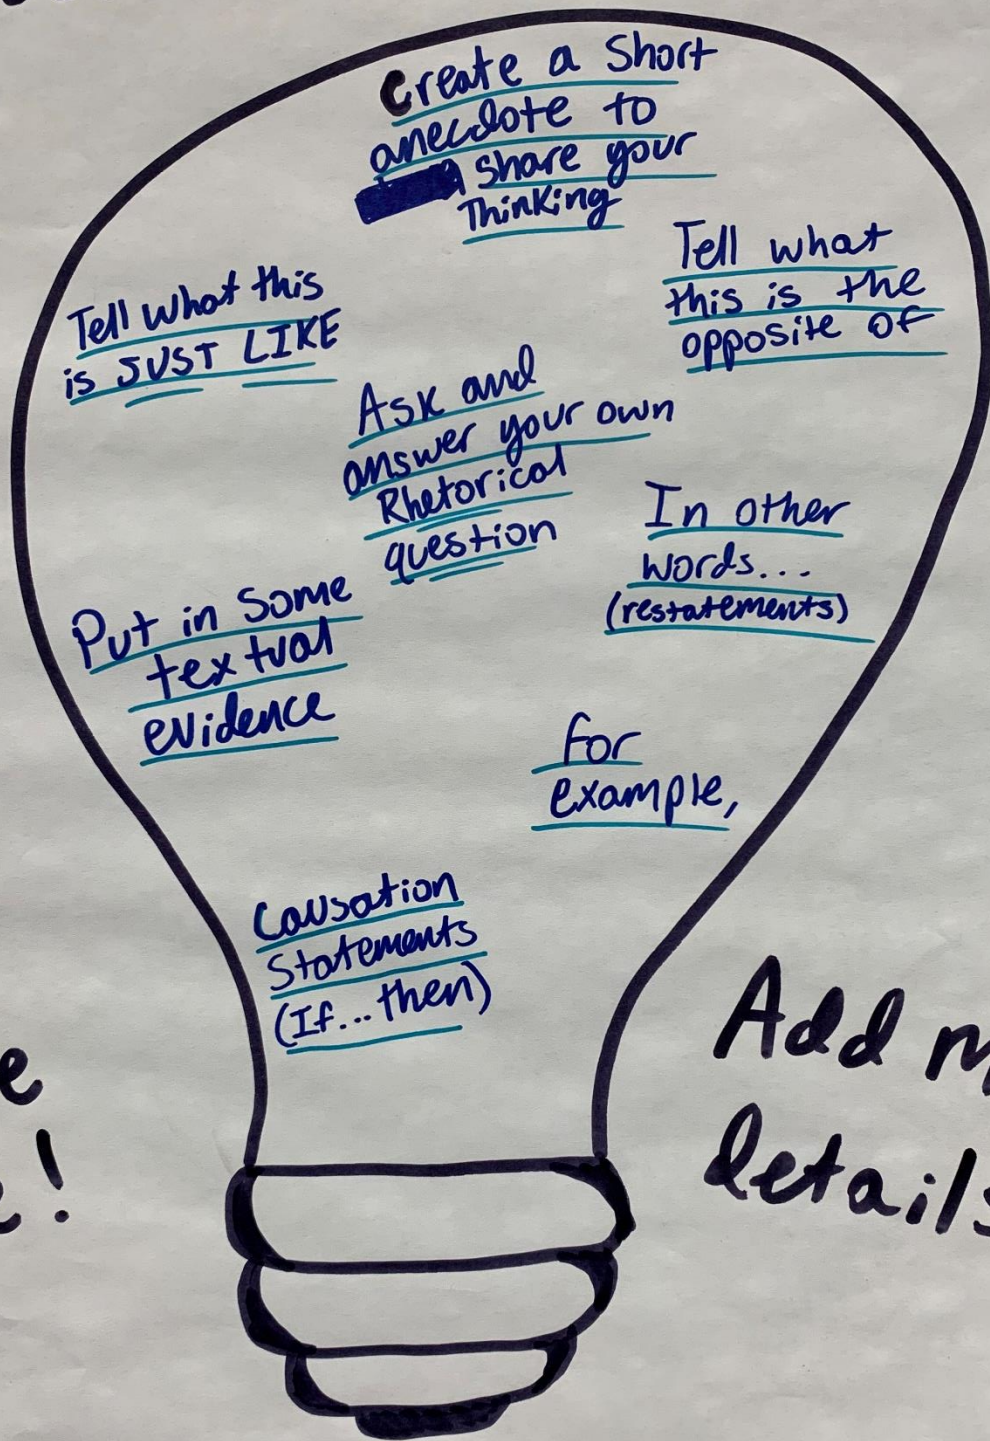 Create a Short
anecdote to
share your
Thinking
Tell what this
is JUST LIKE
Tell what
this is the
opposite of
Ask and
answer your own
Rhetorical
question
In other
words...
(restatements)
Put in Some
textual
evidence
for
example,
Causation
Statements
(If...then)
Add
details